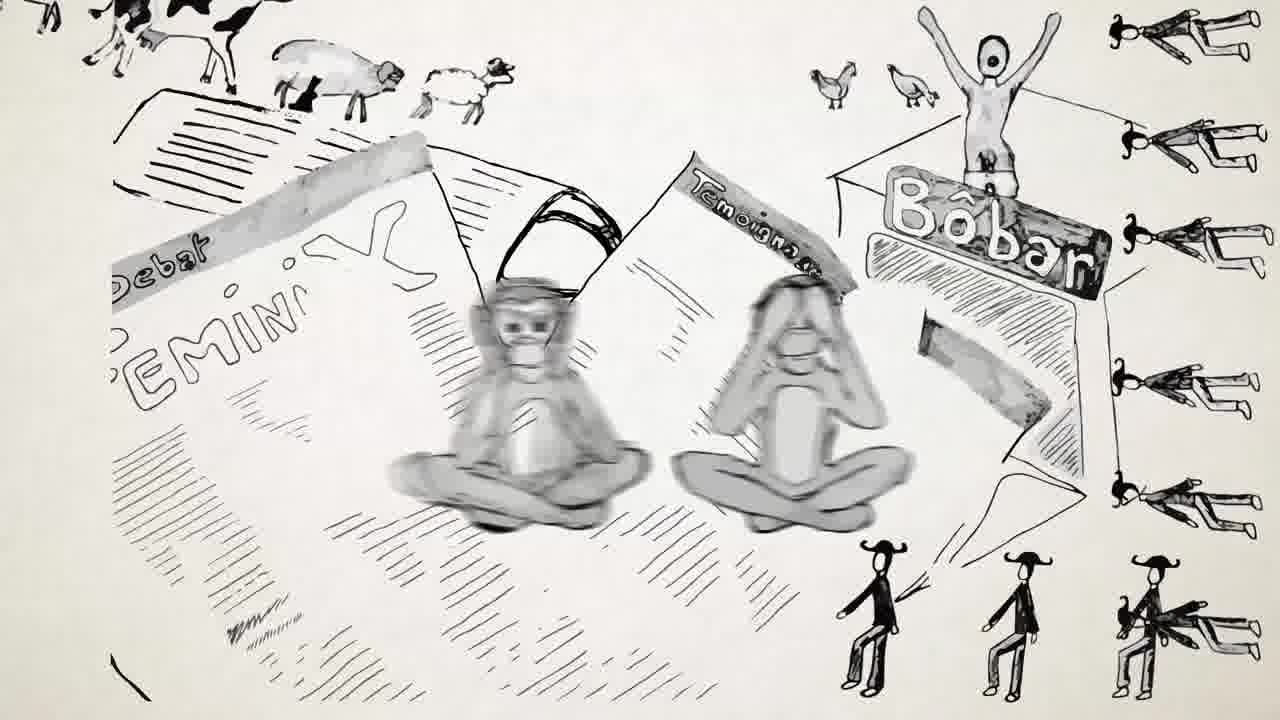 Debat
EMINI
Temoignage
Bôbar